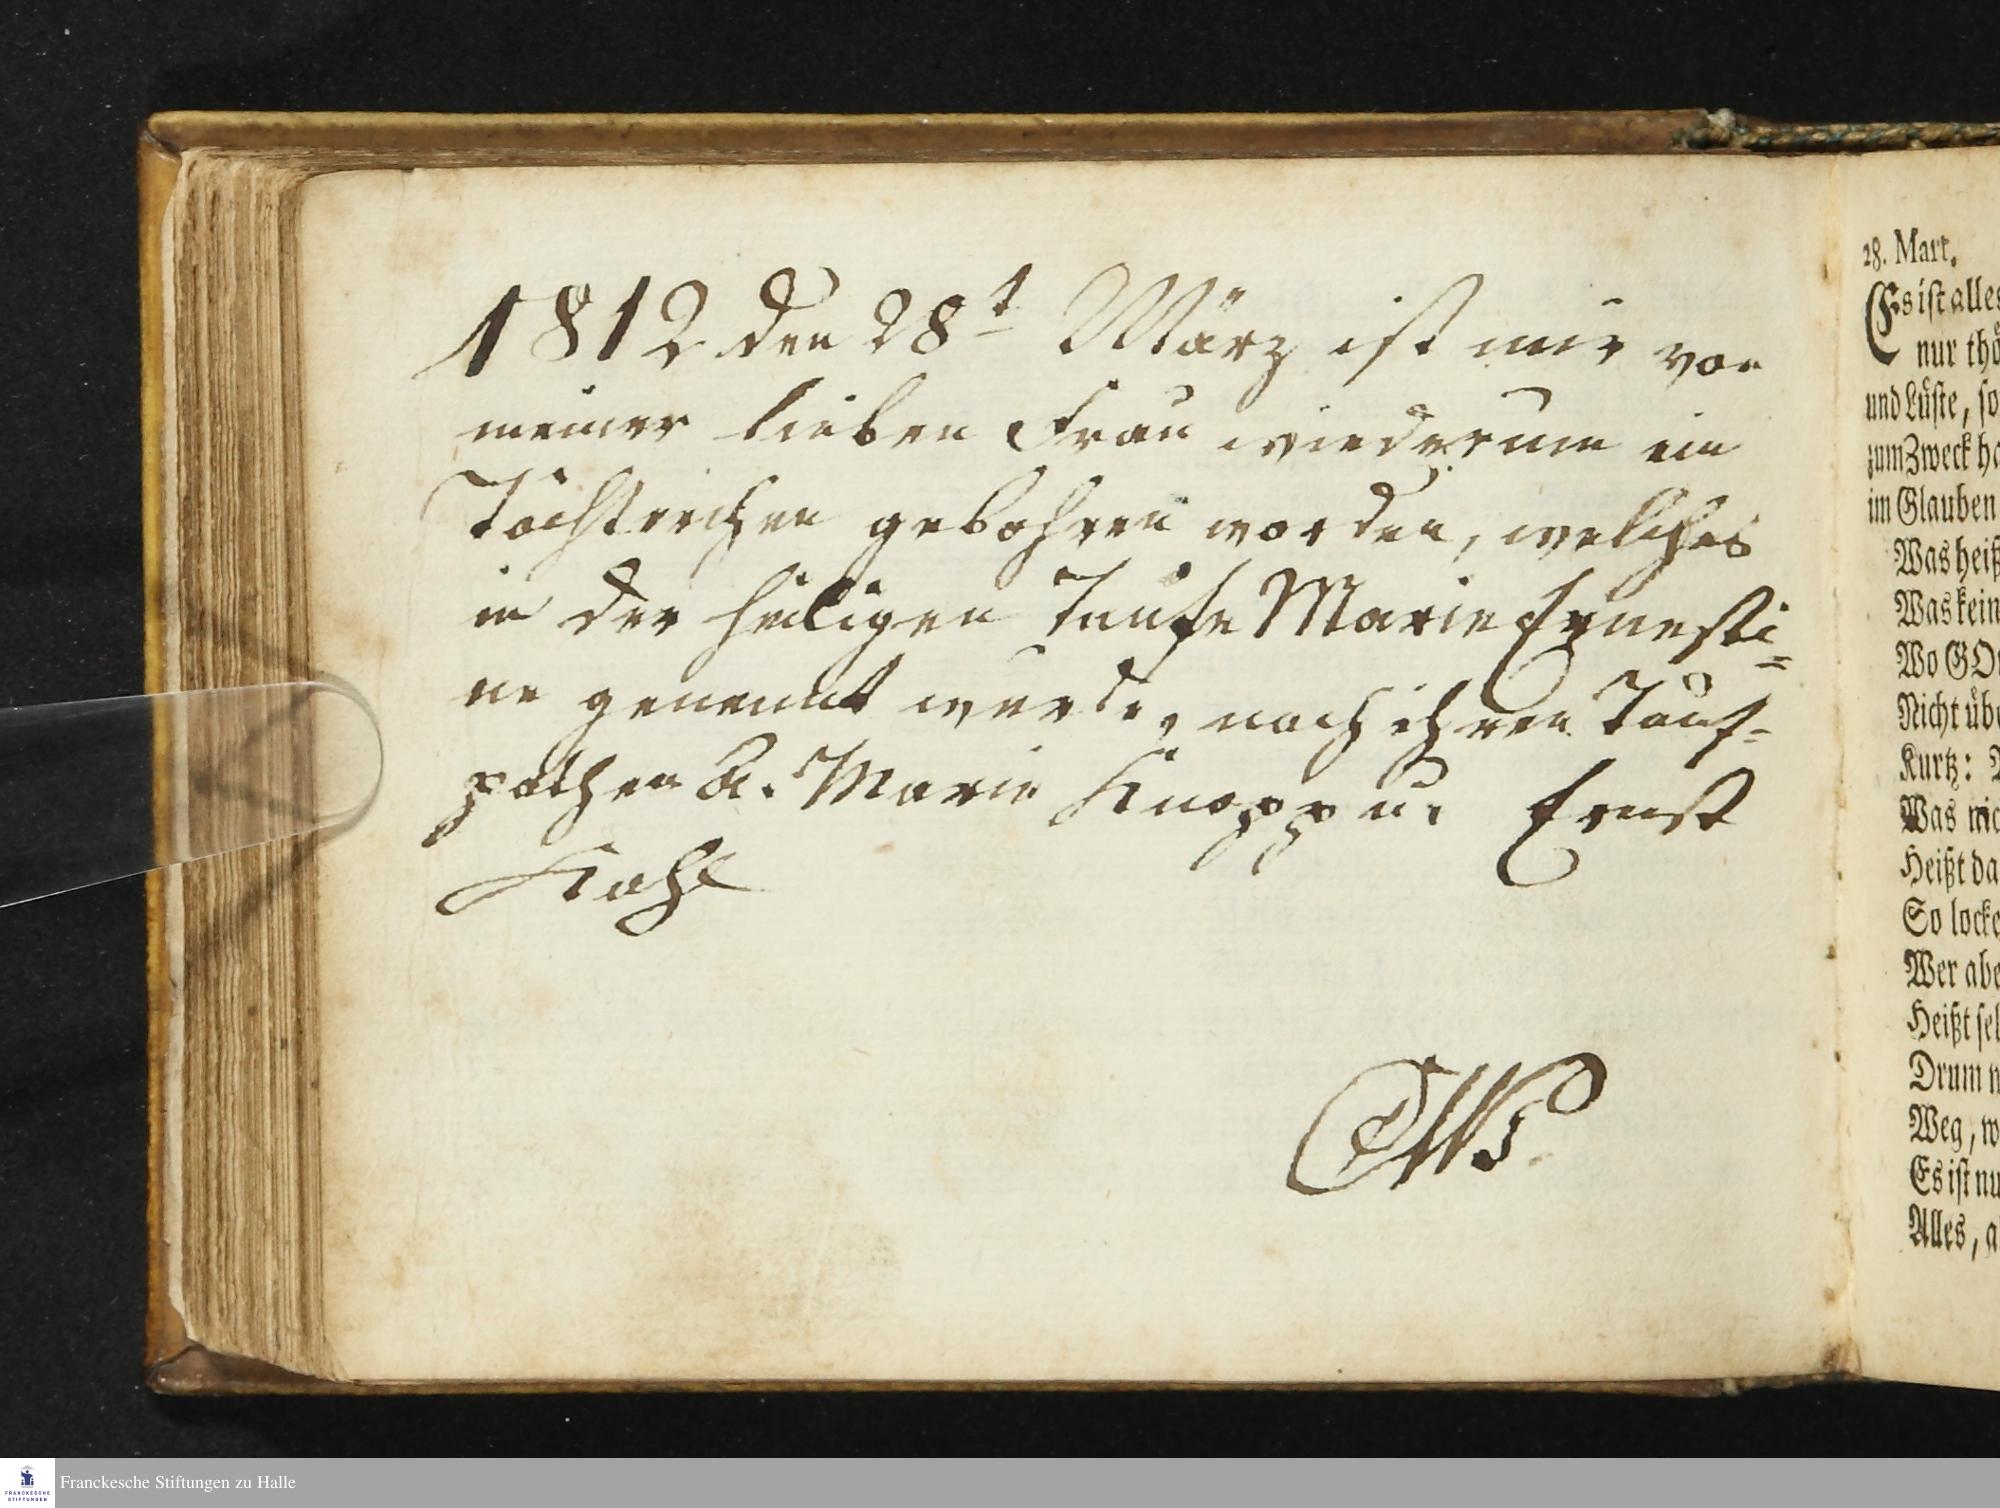 1812 den 28t März ist mir von
meiner lieben Frau wiederum ein
Töchterchen gebohren worden, welches
in der heiligen Taufe Marie Ernesti=
ne genennt wurde, nach ihren Tauf-
pathen A. Marie Knopp u. Ernst
Kohl
28. Mart.
Es ist alles
nur thö
und Lüste, so
zum Zweck ha
im Glauben
Was heiß
Was kein
Wo GOt
Nicht übe
Kurtz:
Was nic
Heißt da
So locke
Wer abe
Heißt sel
Drum
Weg, w
Es ist nu
Alles, a
FRANCKESCHE
STIFTUNGEN
Franckesche Stiftungen zu Halle